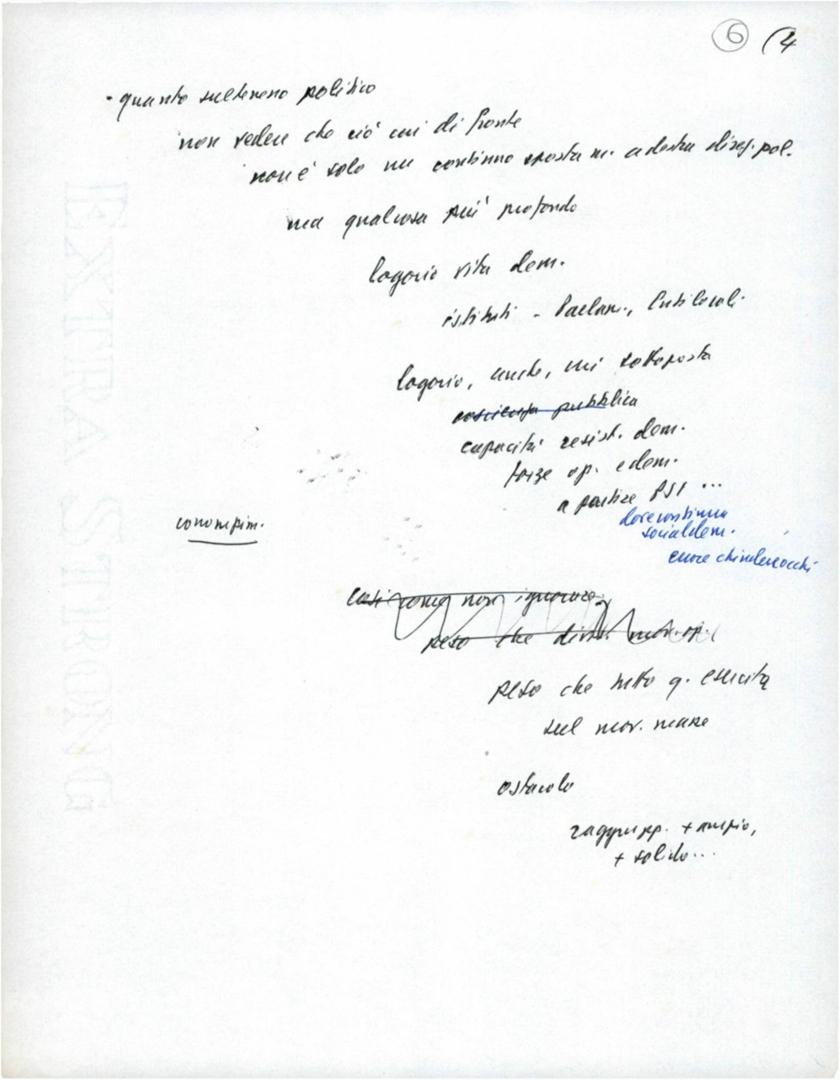 6 (4
· quanto sul terreno politico
non vedere che ciò cui di fronte
non è solo un continuo spostam. a destra diseg. pol.
ma qualcosa più profondo
logorio vita dem.
istituti - Parlam., Enti locali
logorio, anche, cui sottoposta
coscienza pubblica
capacità resist. dem.
forze op. e dem.
a partire PSI ...
dove continua
socialdem.
così come non ignorare
peso che mov. op.
peso che tutto q. esercita
sul mov. masse
ostacolo
raggrupp. + ampio,
+ solido...
EXTRA STRONG